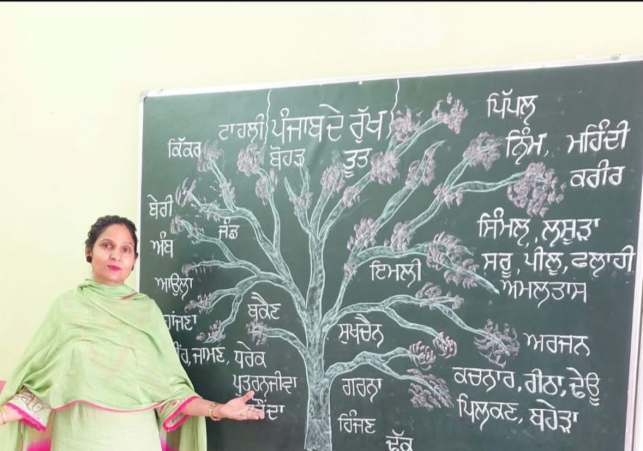 ਪੰਜਾਬ ਦੇ ਰੁੱਖ
ਟਾਹਲੀ
ਪਿੱਪਲ
ਕਿੱਕਰ
ਬੋਹੜ
ਤੂਤ
ਨਿੰਮ, ਮਹਿੰਦੀ
ਕਰੀਰ
ਬੇਰੀ
ਜੰਡ
ਅੰਬ
ਸਿੰਮਲ, ਲਸੂੜਾ
ਸਰੂ, ਪੀਲੂ, ਫਲਾਹੀ
ਅਮਲਤਾਸ
ਇਮਲੀ
ਆਉਲਾ
ਬਕੈਣ
ਸੁਖਚੈਨ
ਅਰਜਨ
ਜਾਮਣ, ਧਰੇਕ
ਪੁਤਰਨਜੀਵਾ
ਗਰਨਾ
ਕਚਨਾਰ, ਰੀਠਾ, ਢੇਊ
ਪਿਲਕਣ, ਬਹੇੜਾ
ਹਿੰਜਣ
ਢੱਕ